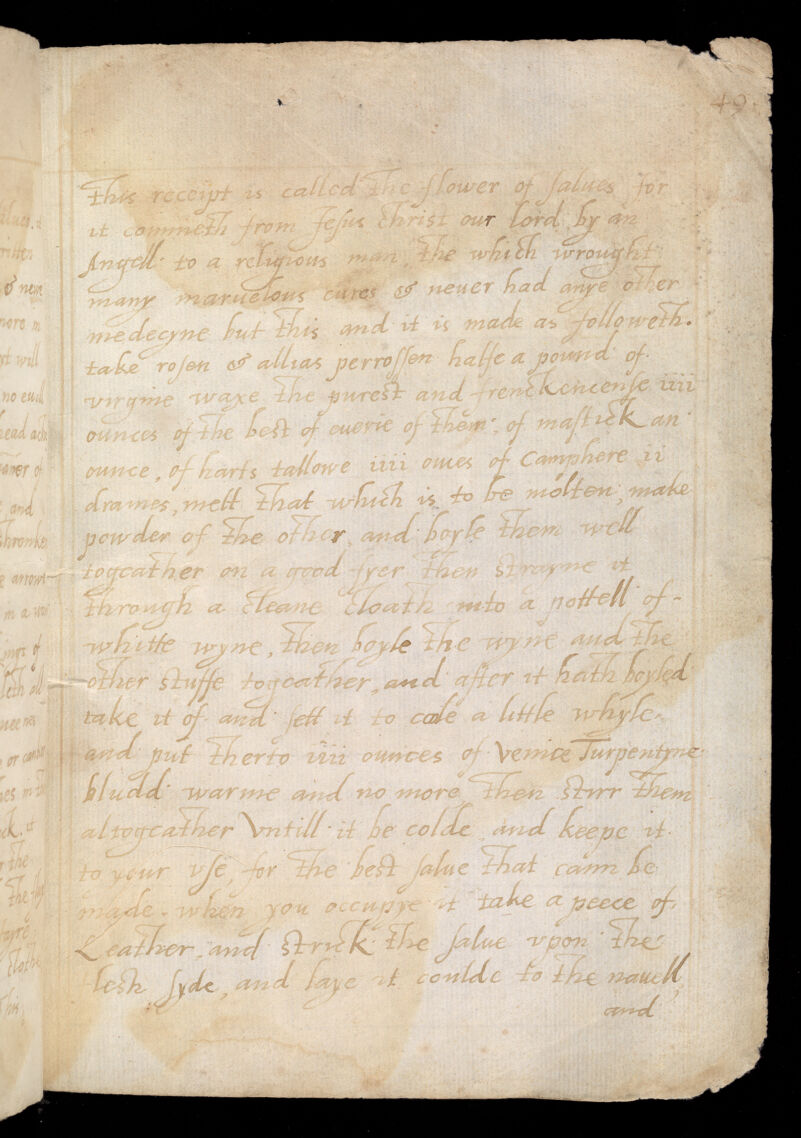 49
This receipt is called the flower of salues for
it commeth from Jesus Christ our lord by an
Angell to a religious man, the which wrought
many maruelous cures & neuer had anye other
medecyne but this and it is made as followeth.
take rosen & allias perrossen halfe a pound of
virgine waxe the purest and frenckencense iiii
ounces of the best of euerie of them, of mastick an
ounce, of harts tallowe iiii owes of Camphere ii
drames, melt that which is to be molten, make
powder of the other, and boyle them well
togeather on a good fyer then strayne it
through a cleane cloath into a pottell of
whitte wyne, then boyle the wyne and the
other stuffe togeather, and after it hath boyled
take it of and sett it to coole a little whyle
and put therto iiii ounces of Venice Turpentyne
bludd warme and no more, then stirr them
altogeather Vntill it be colde, and keepe it
to your vse, for the best salue that cann be
made. when you occupye it take a peece of
Leather, and strick the salue vpon the
flesh syde, and laye it coulde to the nauell,
and